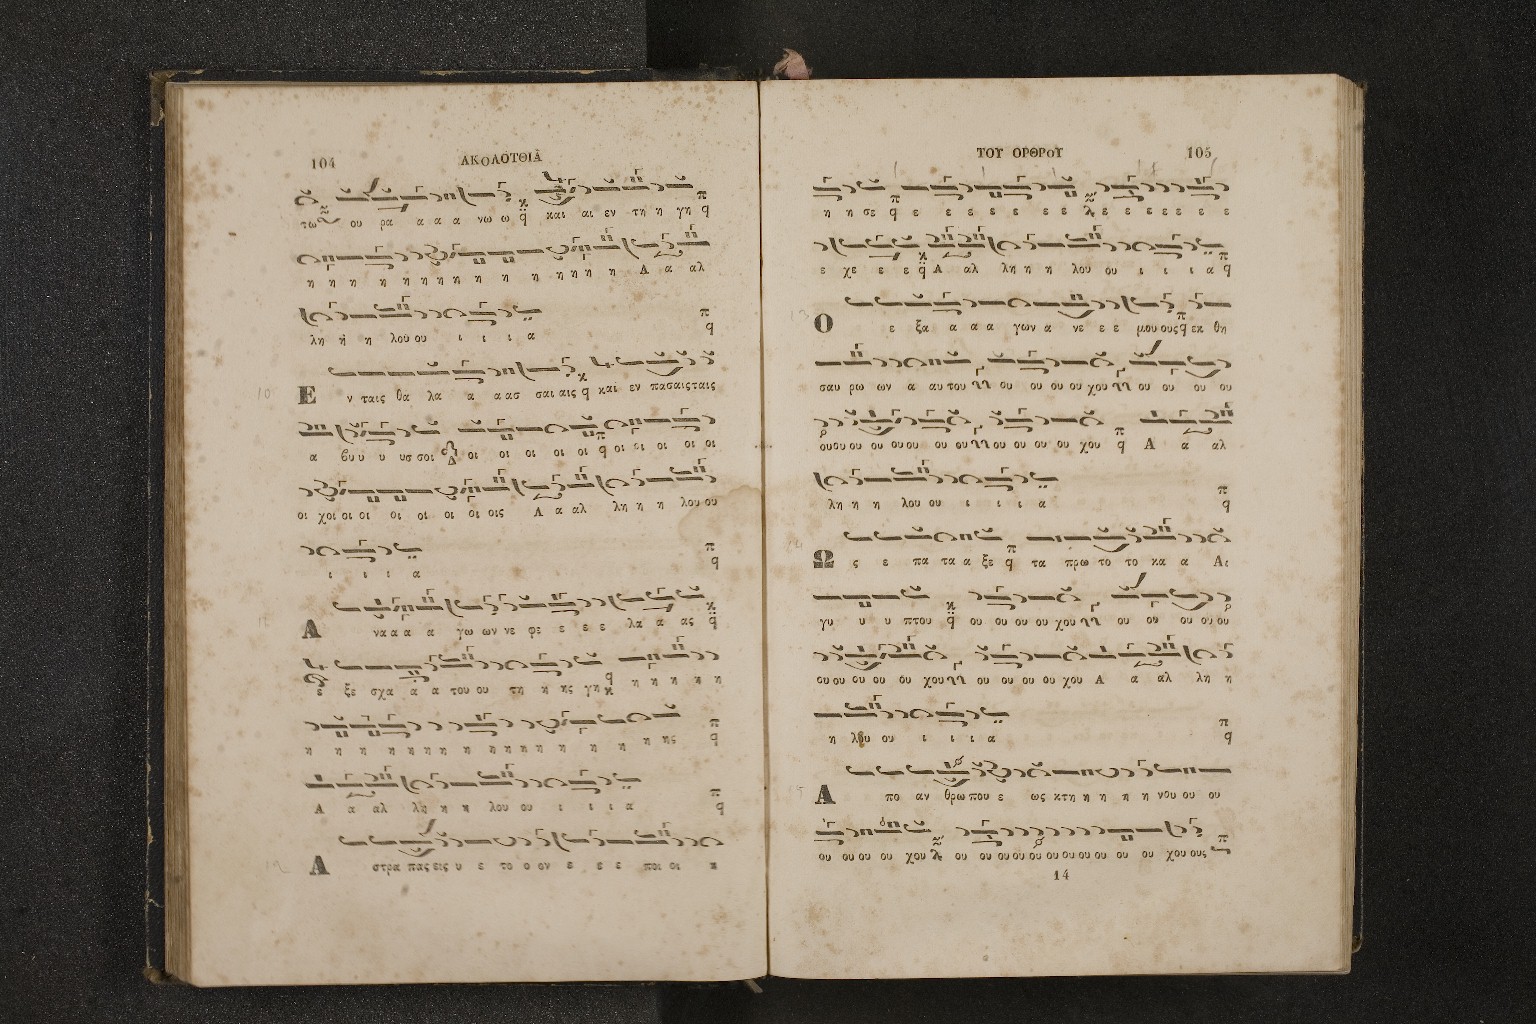 104
ΑΚΟΛΟΤΘΙΑ
τω ου ρα α α α νω ω και αι εν τη η γη
η η η η η η η η η η η η η η Α α αλ
λη ή η λου ου ι ι ι α
Ε ν ταις θα λα α α ασ σαι αις και εν πασαις ταις
α βυ υ υ υσ σοι οι οι οι οι οι οι οι οι οι οι
οι χοι οι οι οι οι οι οι οις Α α αλ λη η η λου ου
ι ι ι α
Α να α α α γω ων νε φε ε ε ε λα α ας
ε ξε σχα α α του ου τη η ης γη η η η η η
η η η η η η η η η η η η η η η ης
Α α αλ λη η η λου ου ι ι ι α
Α στρα πας εις υ ε το ο ον ε ε ε ποι οι η
ΤΟΥ ΟΡΘΡΟΥ
105
η η σε ε ε ε ε ε ε ε ε ε ε ε ε ε ε
ε χε ε ε Α αλ λη η η λου ου ι ι ι α
Ο ε ξα α α α γων α νε ε ε μου ους εκ θη
σαυ ρω ων α αυ του ου ου ου ου χου ου ου ου ου
ου ου ου ου ου ου ου ου ου ου ου ου χου Α α αλ
λη η η λου ου ι ι ι α
Ω ς ε πα τα α ξε τα πρω το το κα α Αι
γυ υ υ πτου ου ου ου ου χου ου ου ου ου ου
ου ου ου ου ου χου ου ου ου ου ου χου Α α αλ λη η
η λου ου ι ι ι α
Α πο αν θρω που ε ως κτη η η η η νου ου ου
ου ου ου ου χου ου ου ου ου ου ου ου ου ου ου ου χου ους
14